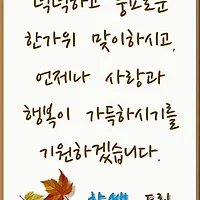 넉넉하고 풍요로운
한가위 맞이하시고,
언제나 사랑과
행복이 가득하시기를
기원하겠습니다.